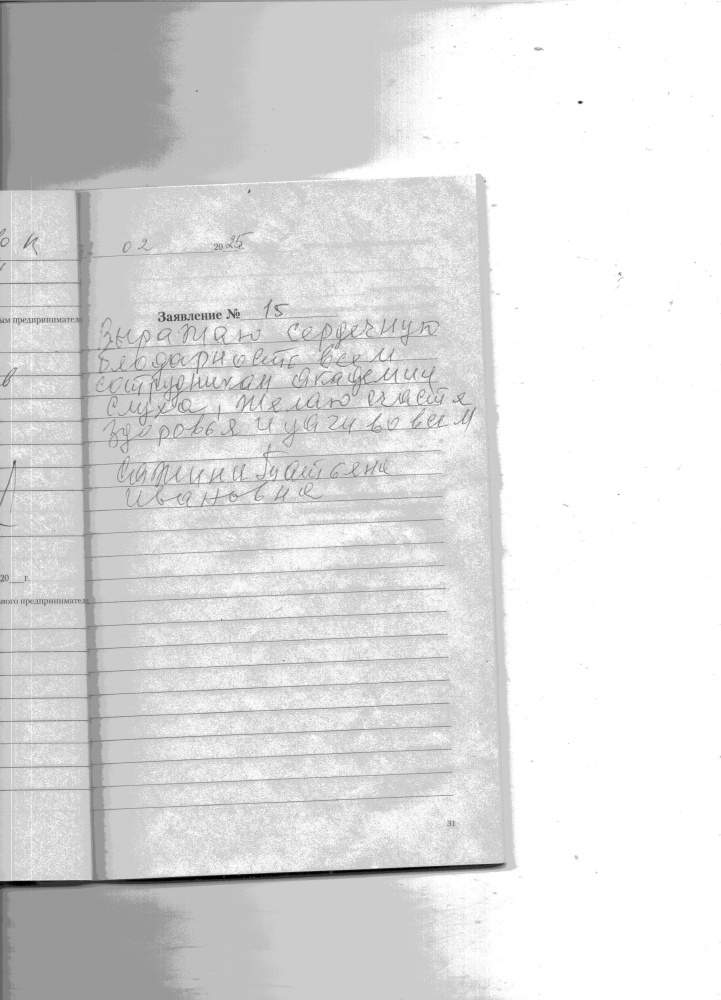 02 2025
Заявление № 15
Выражаю сердечную
блодарность всем
сотрудникам академии
слуха, желаю счастя
здоровья и удачи во всем
Татьяна
Ивановна
ым предпринимател
в
20___г.
ного предпринимател
31